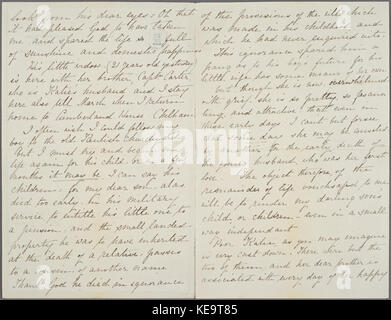 look from his dear eyes - Oh that
it had pleased God to have taken
me, and spared the life so full
of sunshine and domestic happiness
His little widow (21 years old yesterday)
is here with her brother, Capt. Carter,
who is Katie's husband, and I stay
here also till March when I return
home to Cumberland House Chelham
I often wish I could follow my
boy to the old Kentish Churchyard
But I must try and beg for
life again for his child, or in a few
months it may be I can say his
children, for my dear son, alas
died too early in his military
service to entitle his little one to
a pension, and the small landed
property he was to have inherited
at the death of a relative, passes
to a cousin of another name
Thank God he died in ignorance
of the provisions of the will which
was made, in his childhood and
which he had never enquired into.
This ignorance spared him a
pang as to his boy's future for his
little wife has some means of her own
but though she is now overwhelmed
with grief, she is so pretty, so fascin-
ating, and attractive that even in
these early days I can't but foresee
some day she may be
for the early death of
the young husband, who was her first
love. The object therefore of the
remainder of life vouchsafed to me
will be to render my darling son's
child, or children, even in a small
way independent
Poor Katie, as you may imagine
is very cast down. There were but the
two of them, and her dear brother is
associated with every day of her happy
alamy
Image ID: KE9T85
www.alamy.com